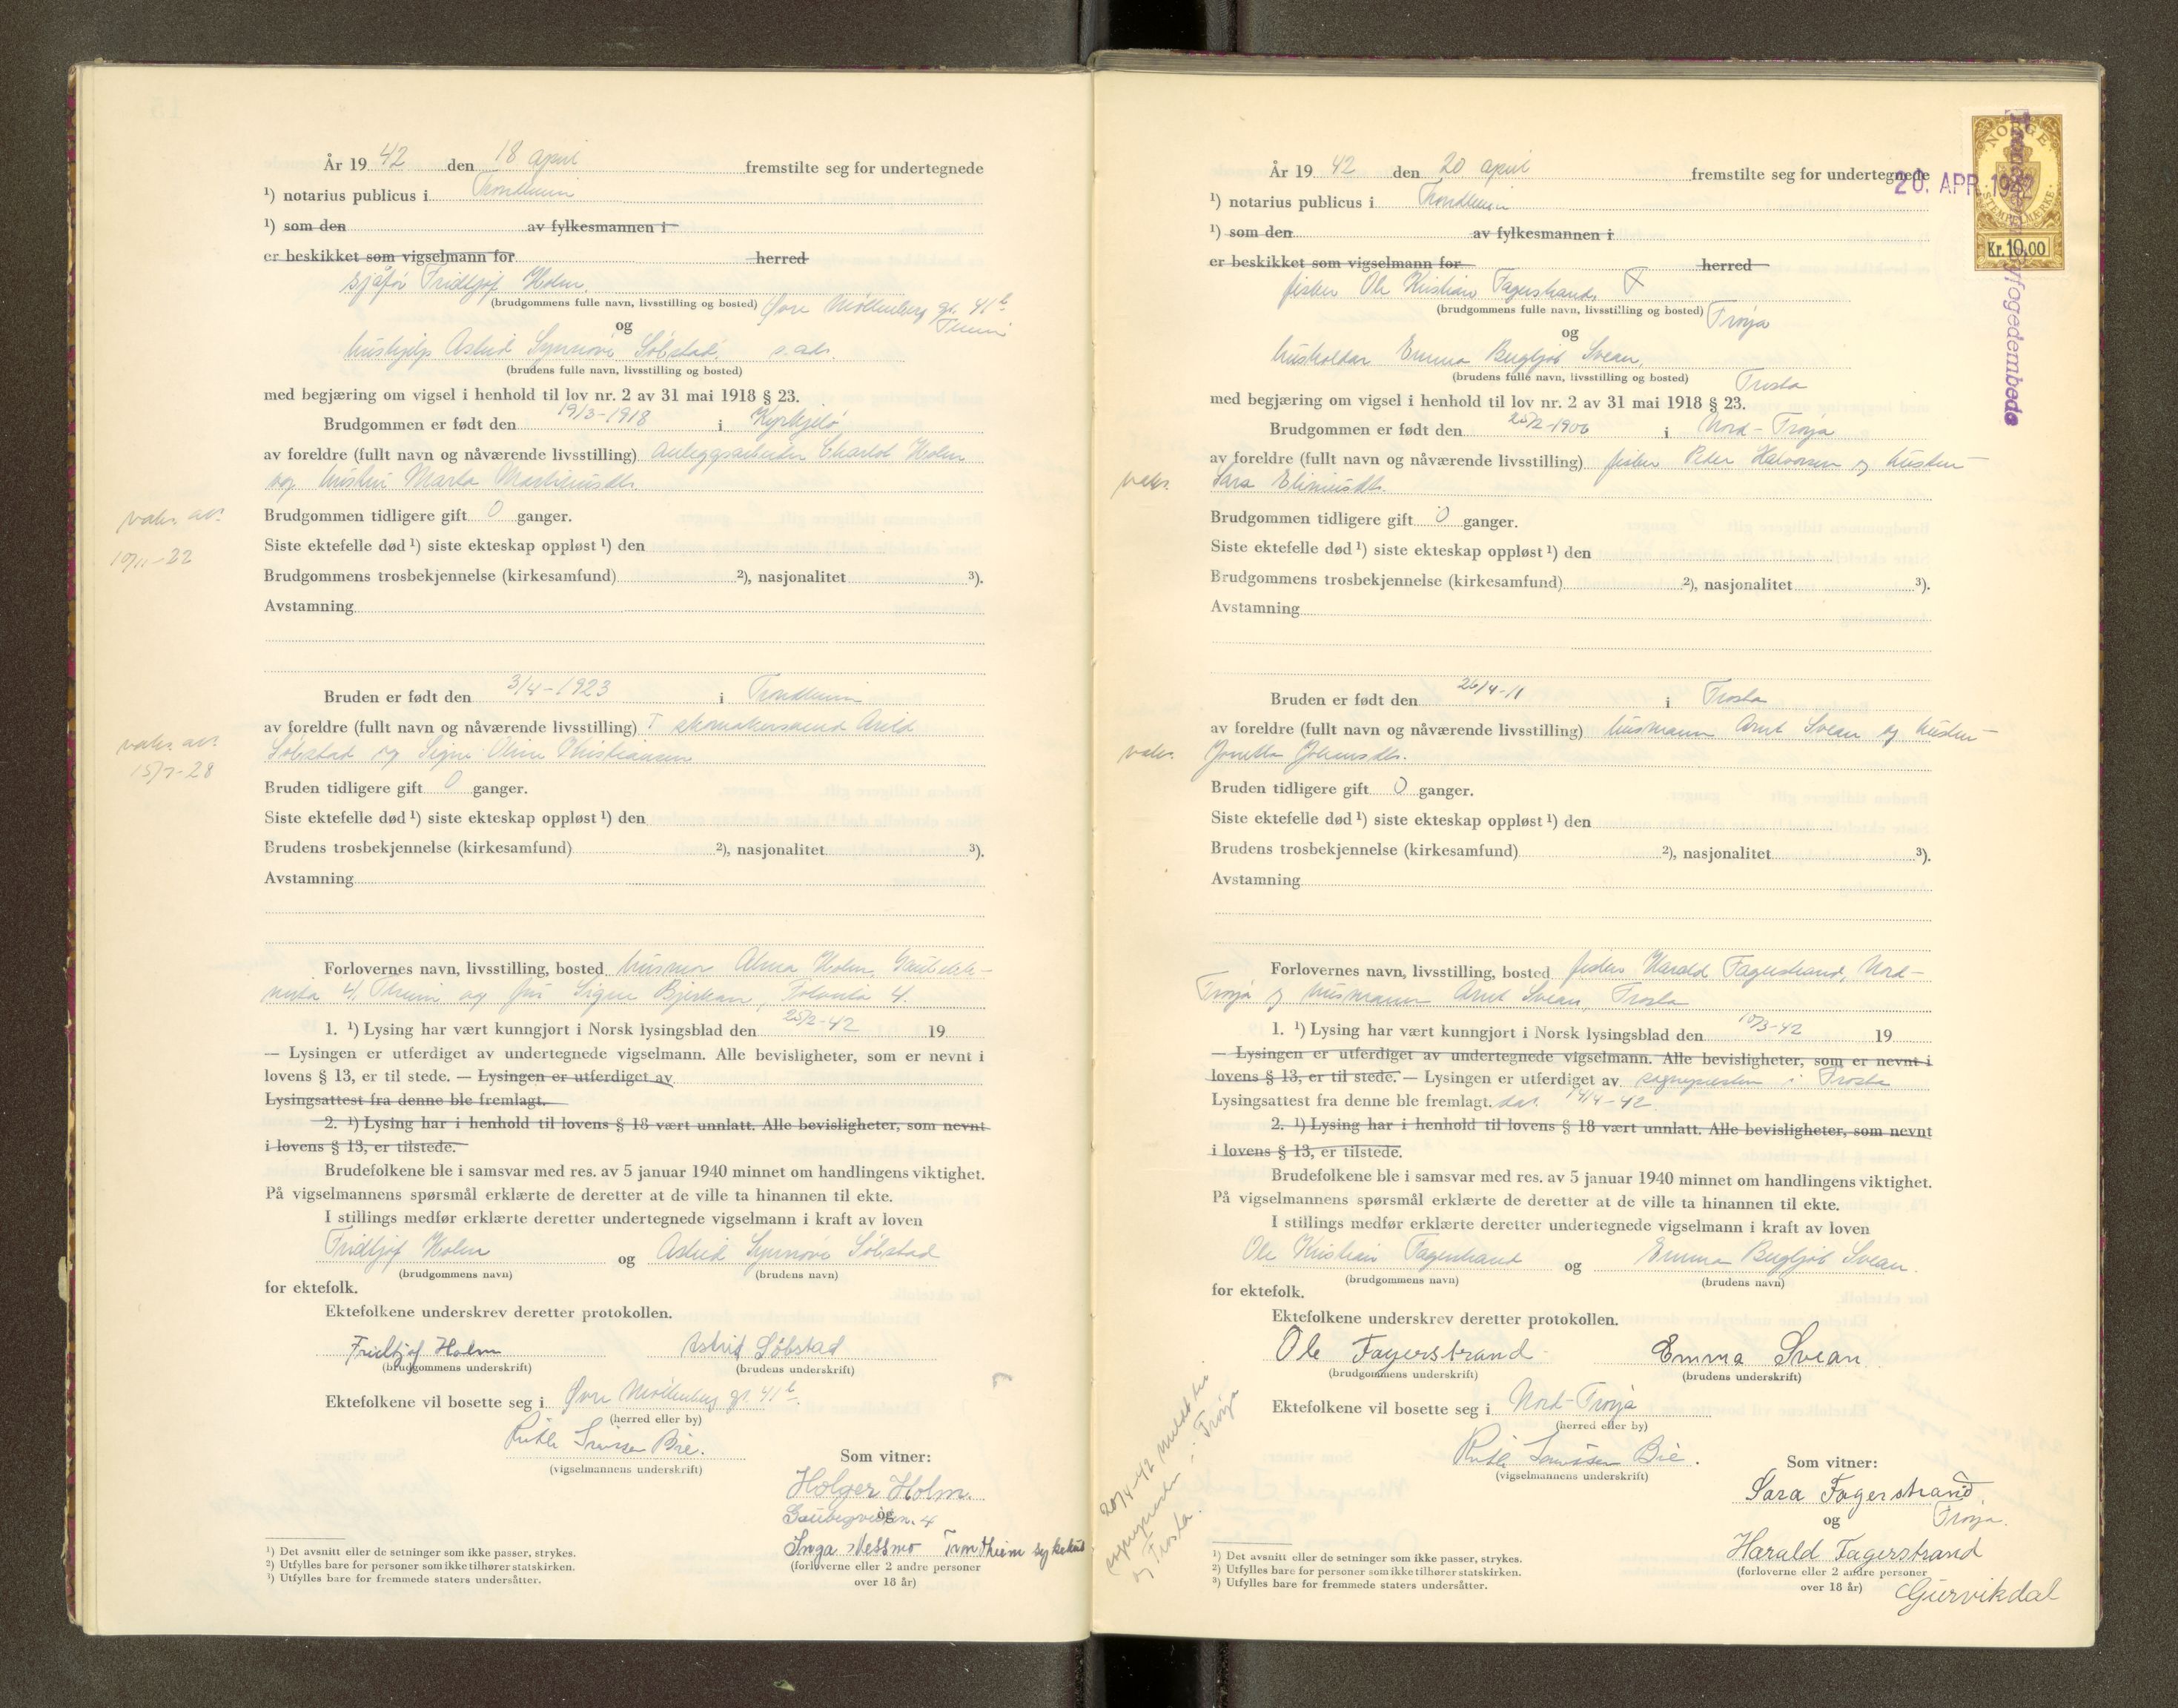 År 19 42 den 18 april fremstilte seg for undertegnede
¹) notarius publicus i Trondheim
¹) som den av fylkesmannen i
er beskikket som vigselmann for herred
sjåfør Fridtjof Holm,
(brudgommens fulle navn, livsstilling og bosted) Øvre Møllenberg gt. 41 b
og
hushjelp Astrid Synnøve Søbstad, s. adr.
(brudens fulle navn, livsstilling og bosted)
med begjæring om vigsel i henhold til lov nr. 2 av 31 mai 1918 § 23.
Brudgommen er født den 19/3-1918 i
av foreldre (fullt navn og nåværende livsstilling) anleggsarbeider Charlot Holm
og hustru Marta
vaks. att.
10/11-22
Brudgommen tidligere gift 0 ganger.
Siste ektefelle død ¹) siste ekteskap oppløst ¹) den
Brudgommens trosbekjennelse (kirkesamfund) ²), nasjonalitet ³).
Avstamning
Bruden er født den 3/4-1923 i Trondheim
av foreldre (fullt navn og nåværende livsstilling) skomakersvend Arild
Søbstad og Signe Oline Kristiansen
vaks. att.
15/7-28
Bruden tidligere gift 0 ganger.
Siste ektefelle død ¹) siste ekteskap oppløst ¹) den
Brudens trosbekjennelse (kirkesamfund) ²), nasjonalitet ³).
Avstamning
Forlovernes navn, livsstilling, bosted husmor Alma Holm,
4, Theim og fru Signe Bjerkan, 4.
1. ¹) Lysing har vært kunngjort i Norsk lysingsblad den 25/2-42 19
— Lysingen er utferdiget av undertegnede vigselmann. Alle bevisligheter, som er nevnt i
lovens § 13, er til stede. — Lysingen er utferdiget av
Lysingsattest fra denne ble fremlagt.
2. ¹) Lysing har i henhold til lovens § 18 vært unnlatt. Alle bevisligheter, som nevnt
i lovens § 13, er tilstede.
Brudefolkene ble i samsvar med res. av 5 januar 1940 minnet om handlingens viktighet.
På vigselmannens spørsmål erklærte de deretter at de ville ta hinannen til ekte.
I stillings medfør erklærte deretter undertegnede vigselmann i kraft av loven
Fridtjof Holm og Astrid Synnøve Søbstad
(brudgommens navn) (brudens navn)
for ektefolk.
Ektefolkene underskrev deretter protokollen.
Fridtjof Holm Astrid Søbstad
(brudgommens underskrift) (brudens underskrift)
Ektefolkene vil bosette seg i Øvre Møllenberg gt. 41 b.
(herred eller by)
Bie.
(vigselmannens underskrift)
Som vitner:
Holger Holm.
og
Inga Messmo Trondheim sykehus
(forloverne eller 2 andre personer
over 18 år)
¹) Det avsnitt eller de setninger som ikke passer, strykes.
²) Utfylles bare for personer som ikke tilhører statskirken.
³) Utfylles bare for fremmede staters undersåtter.
NORGE
STEMPELMÆRKE
Kr. 10,00
20. APR. 1942
År 19 42 den 20 april fremstilte seg for undertegnede
¹) notarius publicus i Trondheim
¹) som den av fylkesmannen i
er beskikket som vigselmann for herred
fisker Ole Kristian Fagerstrand,
(brudgommens fulle navn, livsstilling og bosted) Frøya
og
husholder Emma Bergljot Svean,
(brudens fulle navn, livsstilling og bosted) Frosta
med begjæring om vigsel i henhold til lov nr. 2 av 31 mai 1918 § 23.
Brudgommen er født den 25/2-1906 i Nord-Frøya
av foreldre (fullt navn og nåværende livsstilling) fisker Peder Halvorsen og hustru
Sara
vaks.
Brudgommen tidligere gift 0 ganger.
Siste ektefelle død ¹) siste ekteskap oppløst ¹) den
Brudgommens trosbekjennelse (kirkesamfund) ²), nasjonalitet ³).
Avstamning
Bruden er født den 26/4-11 i Frosta
av foreldre (fullt navn og nåværende livsstilling) husmann Arnt Svean og hustru
Jonetta Johansdtr.
vaks.
Bruden tidligere gift 0 ganger.
Siste ektefelle død ¹) siste ekteskap oppløst ¹) den
Brudens trosbekjennelse (kirkesamfund) ²), nasjonalitet ³).
Avstamning
Forlovernes navn, livsstilling, bosted fisker Harald Fagerstrand, Nord-
Frøya og husmann Arnt Svean, Frosta
1. ¹) Lysing har vært kunngjort i Norsk lysingsblad den 10/3-42 19
— Lysingen er utferdiget av undertegnede vigselmann. Alle bevisligheter, som er nevnt i
lovens § 13, er til stede. — Lysingen er utferdiget av sognepresten i Frosta
Lysingsattest fra denne ble fremlagt. dat. 14/4-42.
2. ¹) Lysing har i henhold til lovens § 18 vært unnlatt. Alle bevisligheter, som nevnt
i lovens § 13, er tilstede.
Brudefolkene ble i samsvar med res. av 5 januar 1940 minnet om handlingens viktighet.
På vigselmannens spørsmål erklærte de deretter at de ville ta hinannen til ekte.
I stillings medfør erklærte deretter undertegnede vigselmann i kraft av loven
Ole Kristian Fagerstrand og Emma Bergljot Svean.
(brudgommens navn) (brudens navn)
for ektefolk.
Ektefolkene underskrev deretter protokollen.
Ole Fagerstrand Emma Svean
(brudgommens underskrift) (brudens underskrift)
Ektefolkene vil bosette seg i Nord-Frøya
(herred eller by)
Bie.
(vigselmannens underskrift)
20/4-42 meldt til
sognepresten i Frøya
og Frosta.
Som vitner:
Sara Fagerstrand
og Frøya.
Harald Fagerstrand
(forloverne eller 2 andre personer
over 18 år) Gurvikdal
¹) Det avsnitt eller de setninger som ikke passer, strykes.
²) Utfylles bare for personer som ikke tilhører statskirken.
³) Utfylles bare for fremmede staters undersåtter.